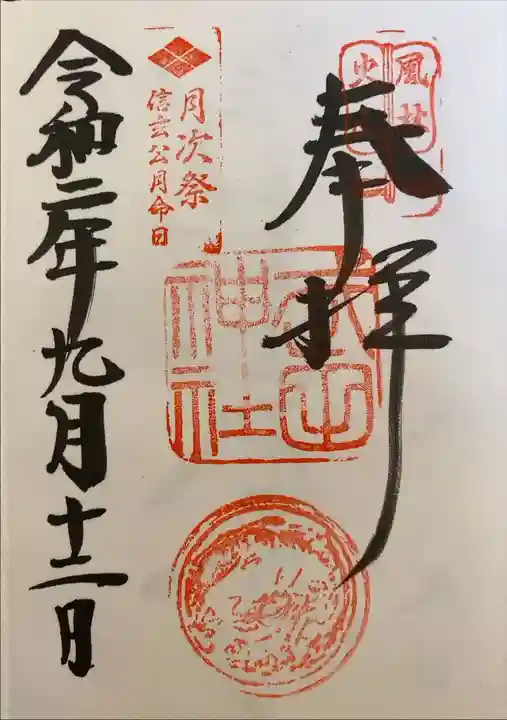 奉拝
風林
火山
武田
神社
月次祭
信玄公月命日
令和二年九月十二日